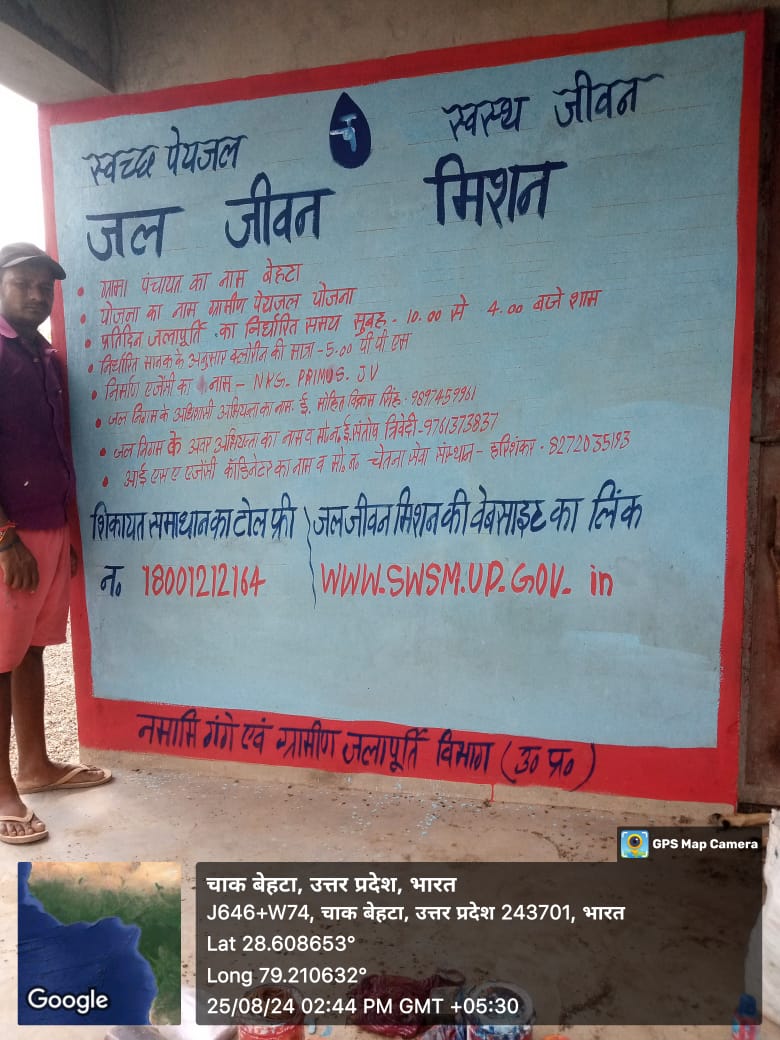 स्वच्छ पेयजल
स्वस्थ जीवन
जल जीवन मिशन
• ग्राम पंचायत का नाम बेहटा
• योजना का नाम ग्रामीण पेयजल योजना
• प्रतिदिन जलापूर्ति का निर्धारित समय सुबह - 10.00 से 4.00 बजे शाम
• निर्धारित मानक के अनुसार क्लोरीन की मात्रा - 5.00 पी पी एम
• निर्माण एजेंसी का नाम - NKG. PRIMUS. JV
• जल निगम के अधिशासी अभियन्ता का नाम. ई. मोहित विक्रम सिंह - 9897459961
• जल निगम के अवर अभियन्ता का नाम व मो.न. ई. संतोष त्रिवेदी - 9761373837
• आई एस ए एजेंसी कॉर्डिनेटर का नाम व मो. न. - चेतना सेवा संस्थान - हरिशंकर - 8272035193
शिकायत समाधान का टोल फ्री
न. 18001212164
जल जीवन मिशन की वेबसाइट का लिंक
WWW.SWSM.UP.GOV. in
नमामि गंगे एवं ग्रामीण जलापूर्ति विभाग (उ० प्र०)
GPS Map Camera
चाक बेहटा, उत्तर प्रदेश, भारत
J646+W74, चाक बेहटा, उत्तर प्रदेश 243701, भारत
Lat 28.608653°
Long 79.210632°
25/08/24 02:44 PM GMT +05:30
Google